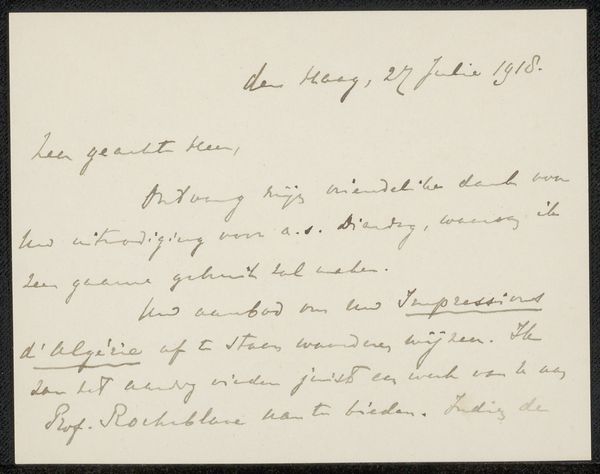 den Haag, 27 Julie 1918.
Zeer geachte Heer,
Ontvang mijn vriendelijke dank voor
Uw uitnoodiging voor a.s. Dinsdag, waarvan ik
zeer gaarne gebruik zal maken.
Uw aanbod om Uw Impressions
d'Algérie af te staan waardeer wij zeer. Ik
zou het aardig vinden juist een werk van U aan
Prof. Rocheblave aan te bieden. Indien de